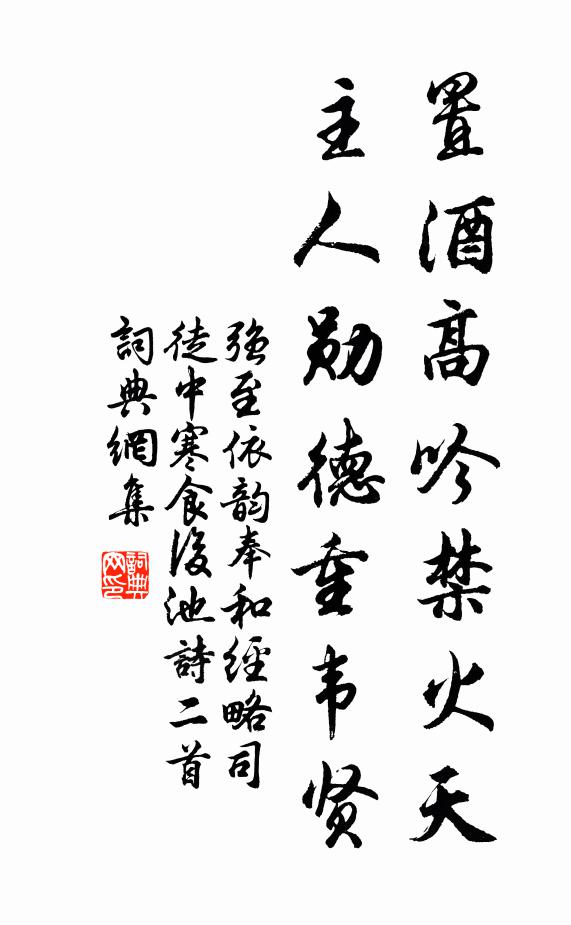 置酒高吟禁火天
主人勋德重韦贤
强至依韵奉和經略司
徒中寒食後池詩二首
詞典網集
詞典
网印